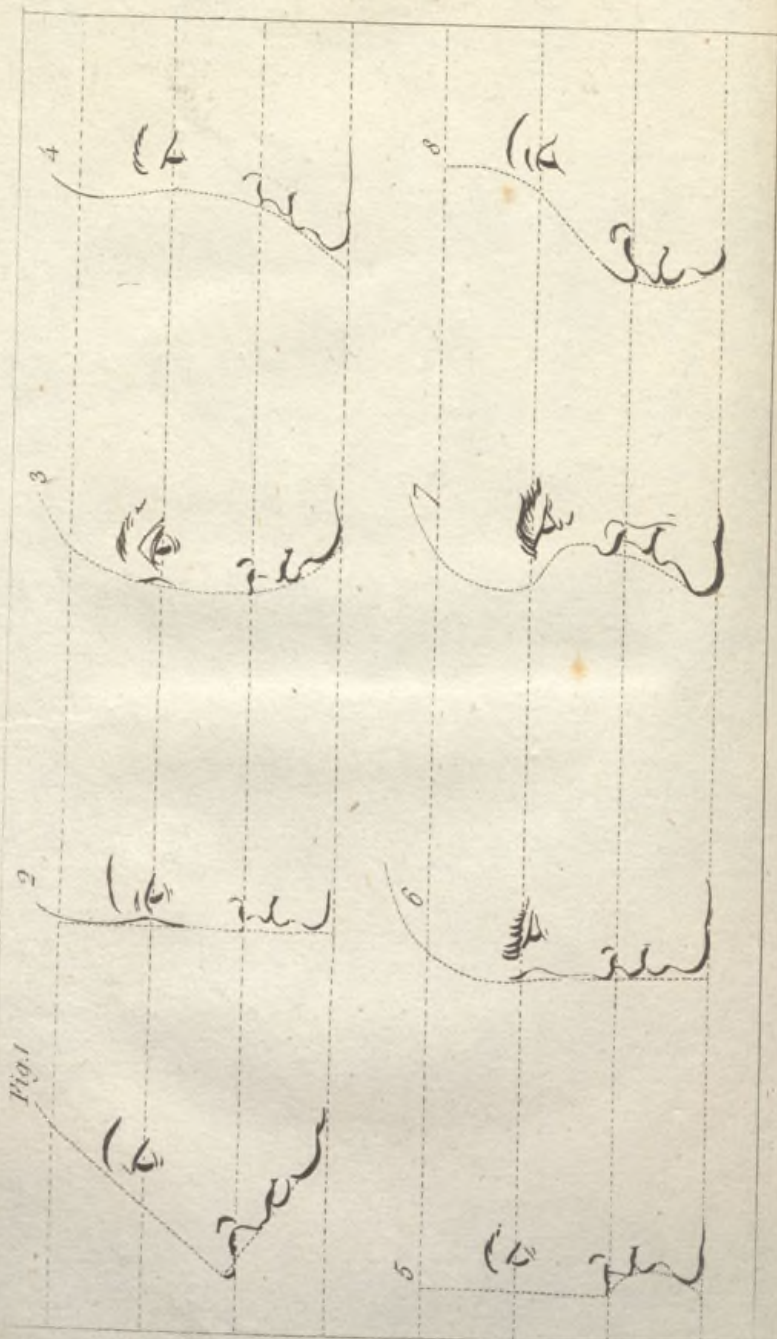 Fig.1
2
3
4
5
6
7
8